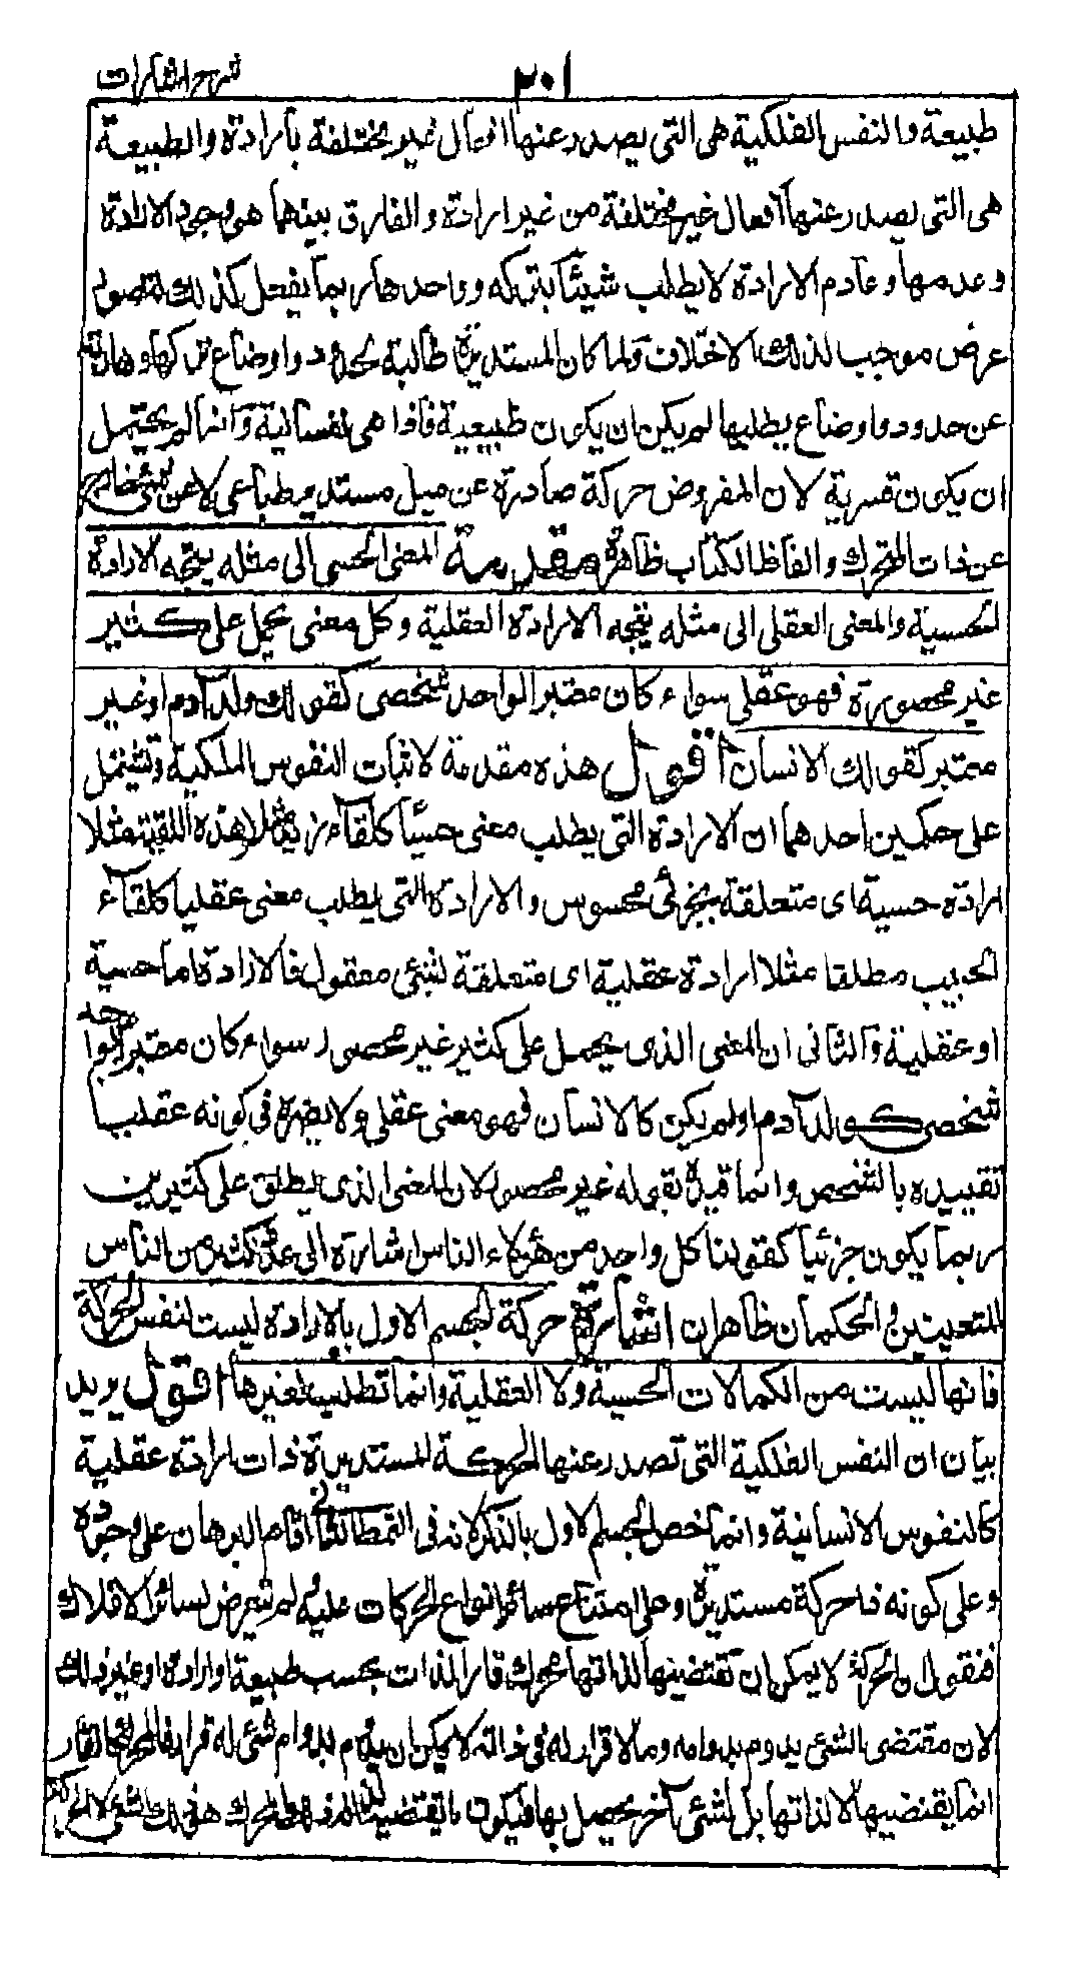 شرح اشارات
٢٠١
طبيعة والنفس الفلكية هى التى يصدر عنها افعال غير مختلفة بارادة والطبيعة
هى التى يصدر عنها افعال غير مختلفة من غير ارادة والفارق بينهما هى وجود الارادة
وعدمها وعادم الارادة لا يطلب شيئا يتركه وواحدها ربما يفعل كذلك لتصور
عرض موجب لذلك الاختلاف ولما كان المستديرة طالبة لحدود واوضاع تركها وهاربة
عن حدود واوضاع يطلبها لم يكن ان يكون طبيعية فاذا هى نفسانية وانما لم يحتمل
ان يكون قسرية لان المفروض حركة صادرة عن ميل مستدير طباعى لا عن شئ خارج
عن ذات المتحرك والفاظ الكتاب ظاهرة مقدمة المعنى الحسى الى مثله يتجه الارادة
الحسية والمعنى العقلى الى مثله يتجه الارادة العقلية وكل معنى يحمل على كثير
غير محصورة فهو عقلى سواء كان معتبرا لواحد شخصى كقولك ولد آدم او غير
معتبر كقولك الانسان اقول هذه مقدمة لاثبات النفوس الملكية وتشتمل
على حكمين احدهما ان الارادة التى يطلب معنى حسيا كلقاء زيد مثلا هذه اللقية مثلا
ارادة حسية اى متعلقة بجزئى محسوس والارادة التى يطلب معنى عقليا كلقاء
الحبيب مطلقا مثلا ارادة عقلية اى متعلقة لشئ معقول فالارادة اما حسية
او عقلية والثانى ان المعنى الذى يحمل على كثير غير محصور سواء كان معتبرا لواحد
شخصى كولد آدم او لم يكن كالانسان فهو معنى عقلى ولا يضره فى كونه عقليا
تقييده بالشخص وانما قيده بقوله غير محصور لان المعنى الذى يطلق على كثيرين
ربما يكون جزئيا كقولنا كل واحد من هؤلاء الناس اشارة الى عدة كثير من الناس
المتعينين والحكمان ظاهران اشارة حركة الجسم الاول بالارادة ليست لنفس الحركة
فانها ليست من الكمالات الحسية ولا العقلية وانما تطلب لغيرها اقول يريد
بيان ان النفس الفلكية التى تصدر عنها الحركة المستديرة ذات ارادة عقلية
كالنفوس الانسانية وانما خص الجسم الاول بالذكر لانه فى النمط الثانى اقام البرهان على وجوده
وعلى كونه ذا حركة مستديرة وعلى امتناع سائر انواع الحركات عليه ولم يتعرض لسائر الافلاك
فنقول ان الحركة لا يمكن ان تقتضيها لذاتها محرك قار الذات بحسب طبيعة او ارادة او غير ذلك
لان مقتضى الشئ يدوم بدوامه وما لا قرار له فى ذاته لا يمكن ان يدوم بدوام شئ له قرار فالمحرك القار
انما يقتضيها لا لذاتها بل لشئ آخر يحصل بها فيكون ما يقتضيه لذاته المحرك هو ذلك الشئ لا الحركة